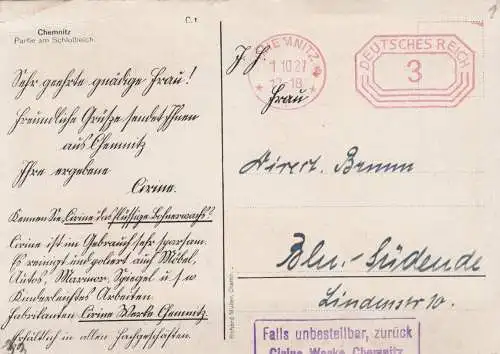 C. 1
Chemnitz
Partie am Schloßteich.
Sehr geehrte gnädige Frau!
Freundliche Grüße sendet Ihnen
aus Chemnitz
Ihre ergebene
Cirine.
Kennen Sie „Cirine" das flüssige Bohnerwachs?
Cirine ist im Gebrauch sehr sparsam.
Es reinigt und poliert auch Möbel,
Autos, Marmor, Spiegel u s w
Kinderleichtes Arbeiten
Fabrikanten Cirine Werke Chemnitz
Erhältlich in allen Fachgeschäften.
Richard Müller, Chemn.
CHEMNITZ
1 10 27
12-18
DEUTSCHES REICH
3
Frau
Direct. Brunn
Bln.-Südende
Lindenstr 10.
Falls unbestellbar, zurück
Cirine Werke Chemnitz